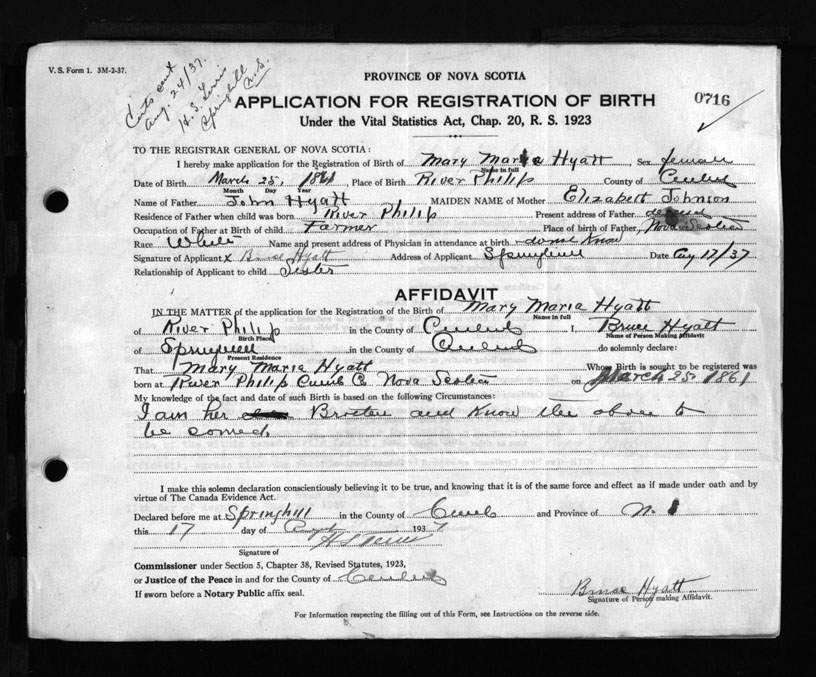 V. S. Form 1. 3M-2-37.
Aug. 24/37.
Springhill
N.S.
PROVINCE OF NOVA SCOTIA
APPLICATION FOR REGISTRATION OF BIRTH
0716
Under the Vital Statistics Act, Chap. 20, R. S. 1923
TO THE REGISTRAR GENERAL OF NOVA SCOTIA:
I hereby make application for the Registration of Birth of Mary Maria Hyatt Sex female
Name in full
Date of Birth March 25, 1861 Place of Birth River Philip County of Cumb
Month Day Year
Name of Father John Hyatt MAIDEN NAME of Mother Elizabeth Johnson
Residence of Father when child was born River Philip Present address of Father
Occupation of Father at Birth of child Farmer Place of birth of Father, Nova Scotia
Race White Name and present address of Physician in attendance at birth dont Know
Signature of Applicant x Bruce Hyatt Address of Applicant Springhill Date Aug 17/37
Relationship of Applicant to child Sister
AFFIDAVIT
IN THE MATTER of the application for the Registration of the Birth of Mary Maria Hyatt
Name in full
of River Philip in the County of Cumb I, Bruce Hyatt
Birth Place Name of Person Making Affidavit
of Springhill in the County of Cumb do solemnly declare:
Present Residence
That Mary Maria Hyatt Whose Birth is sought to be registered was
born at River Philip Cumb Co Nova Scotia on March 25 1861
My knowledge of the fact and date of such Birth is based on the following Circumstances:
I am her Brother and Know the above to
be
I make this solemn declaration conscientiously believing it to be true, and knowing that it is of the same force and effect as if made under oath and by
virtue of The Canada Evidence Act.
Declared before me at Springhill in the County of Cumb and Province of N. S
this 17 day of Augt 1937
Signature of
Commissioner under Section 5, Chapter 38, Revised Statutes, 1923,
or Justice of the Peace in and for the County of Cumb
If sworn before a Notary Public affix seal.
Bruce Hyatt
Signature of Person making Affidavit.
For Information respecting the filling out of this Form, see Instructions on the reverse side.